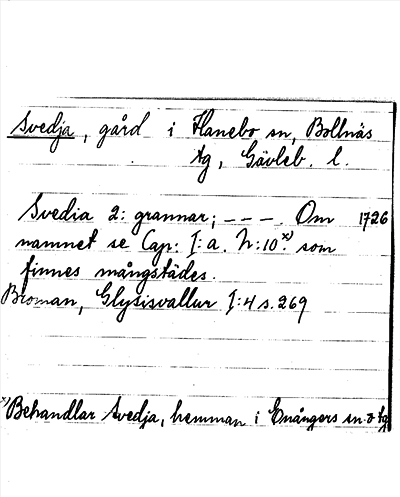 Svedja, gård i Hanebo sn, Bollnäs
tg, Gävleb. l.
Svedia 2: grannar; - - - . Om 1726
namnet se Cap: I: a. N:10.x) som
finnes mångstädes.
Broman, Glysisvallur I:4 s. 269
x) Behandlar Svedja, hemman i Enångers sn. o tg